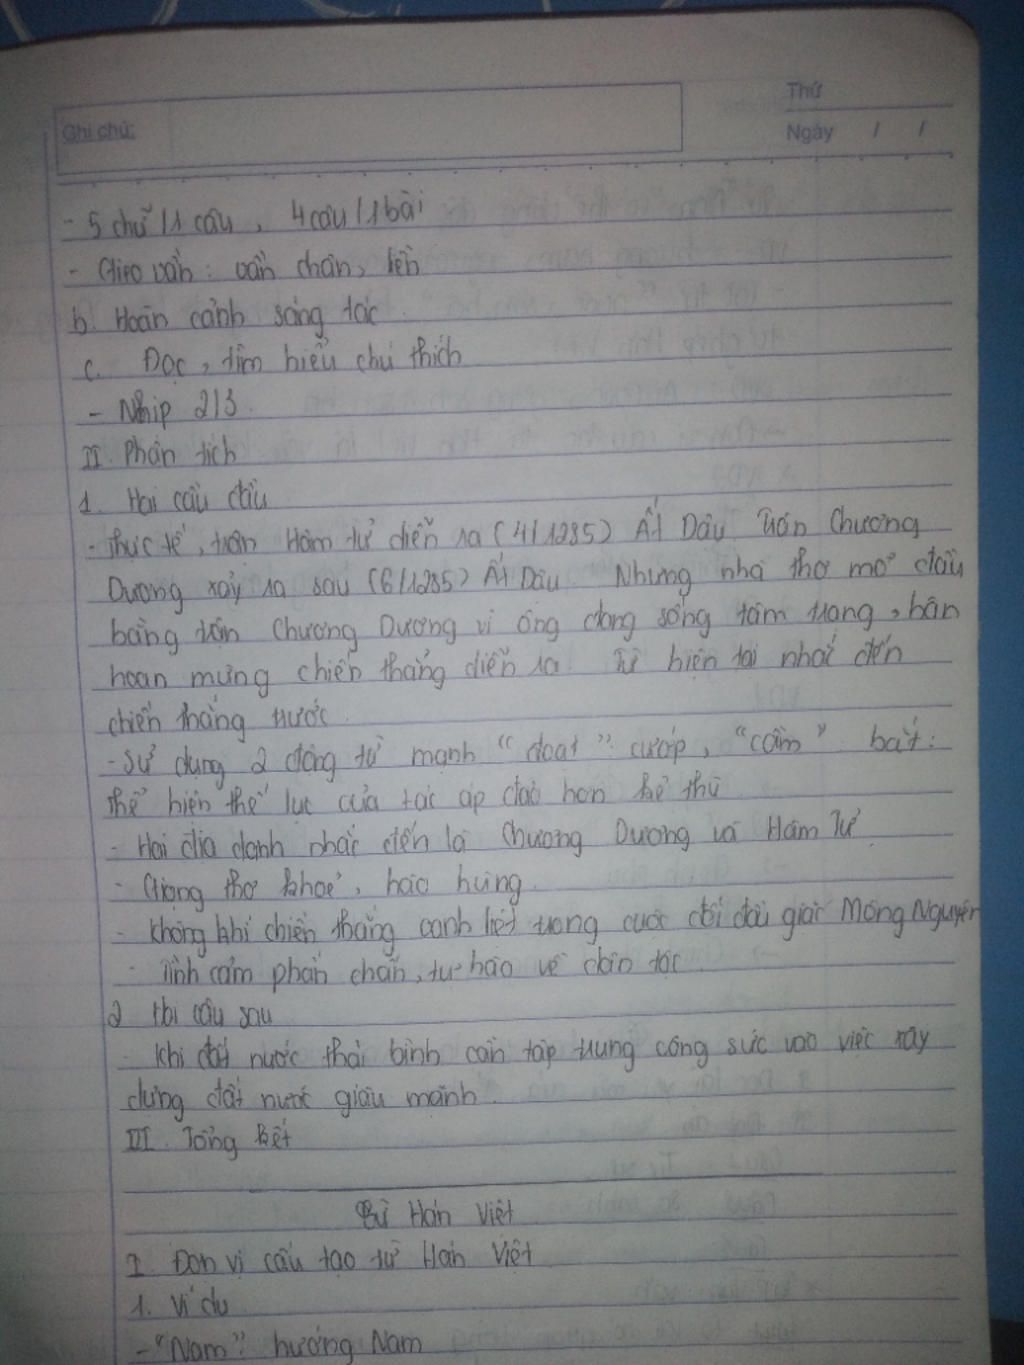 Thứ
Ghi chú:
Ngày / /
- 5 chữ / 1 câu, 4 câu / 1 bài
- Gieo vần: vần chân, liền
b. Hoàn cảnh sáng tác.
c. Đọc, tìm hiểu chú thích
- Nhịp 2/3.
II. Phân tích
1. Hai câu đầu
- Thực tế, trận Hàm tử diễn ra (4/1285) Ất Dậu. Trận Chương
Dương xảy ra sau (6/1285) Ất Dậu. Nhưng nhà thơ mở đầu
bằng trận Chương Dương vì ông đang sống tâm trạng, hân
hoan mừng chiến thắng diễn ra. Từ hiện tại nhắc đến
chiến thắng trước.
- Sử dụng 2 động từ mạnh "đoạt": cướp, "cầm": bắt:
thể hiện thế lực của ta áp đảo hơn kẻ thù
- Hai địa danh nhắc đến là Chương Dương và Hàm Tử
- Giọng thơ khoẻ, hào hùng.
- Không khí chiến thắng oanh liệt trong cuộc đối đầu giặc Mông Nguyên
- Tình cảm phấn chấn, tự hào về dân tộc.
2 Hai câu sau
- Khi đất nước thái bình cần tập trung công sức vào việc xây
dựng đất nước giàu mạnh.
III. Tổng kết
Từ Hán Việt
I. Đơn vị cấu tạo từ Hán Việt
1. Ví dụ
- "Nam": hướng Nam